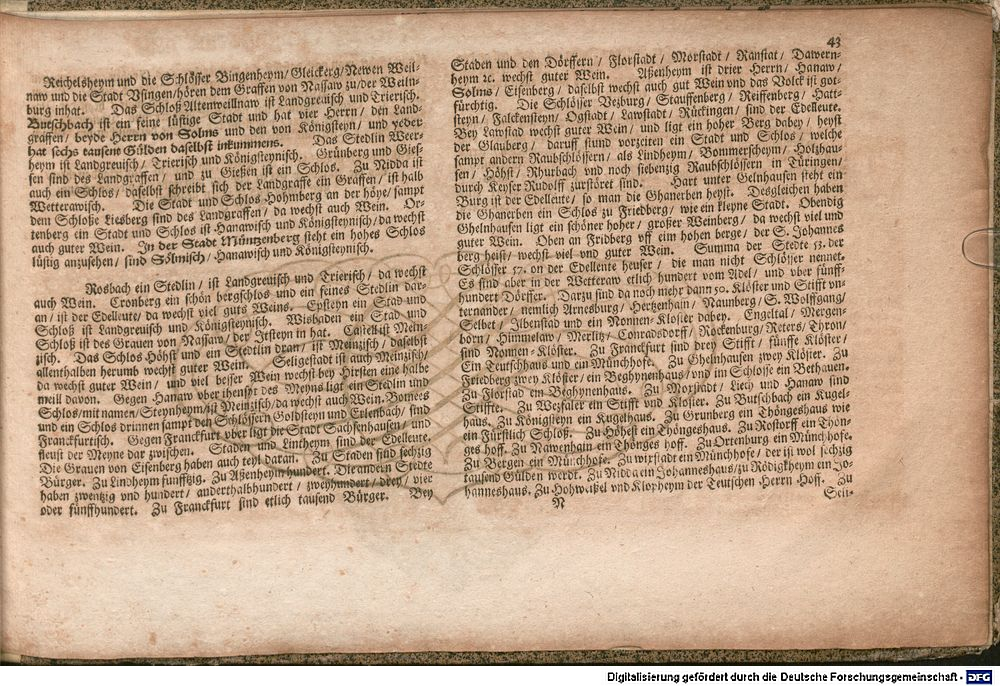 43
Reichelsheym und die Schlösser Bingenheym/ Gleickerg/ Newen Weil-
naw und die Stadt Vsingen/ hören dem Graffen von Nassaw zu/ der Weiln-
burg inhat. Das Schloß Altenweillnaw ist Landgreuisch und Trierisch.
Butschbach ist ein feine lüstige Stadt und hat vier Herrn/ den Land-
graffen/ beyde Herrn von Solms und den von Königsteyn/ und yeder
hat sechs tausent Gülden daselbst inkummens. Das Stedlin Weer-
heym ist Landgreuisch/ Trierisch und Königsteynisch. Grünberg und Gies-
sen sind des Landgraffen/ und zu Giessen ist ein Schlos. Zu Nidda ist
auch ein Schlos/ daselbst schreibt sich der Landgraffe ein Graffen/ ist halb
Wetterawisch. Die Stadt und Schlos Hohmberg an der höye/ sampt
dem Schloße Liesberg sind des Landgraffen/ da wechst auch Wein. Or-
tenberg ein Stadt und Schlos ist Hanawisch und Königsteynisch/ da wechst
auch guter Wein. In der Stadt Müntzenberg steht ein hohes Schlos
lüstig anzusehen/ sind Sölmisch/ Hanawisch und Königsteynisch.
Rosbach ein Stedlin/ ist Landgreuisch und Trierisch/ da wechst
auch Wein. Cronberg ein schön bergschlos und ein feines Stedlin dar-
an/ ist der Edelleute/ da wechst viel guts Weins. Epsteyn ein Stad und
Schloß ist Landgreuisch und Königsteynisch. Wisbaden ein Stad und
Schloß ist des Grauen von Nassaw/ der Itsteyn in hat. Castell ist Mein-
zisch. Das Schlos Höhst und ein Stedtlin dran/ ist Meinzisch/ daselbst
allenthalben herumb wechst guter Wein. Seligestadt ist auch Meinzisch/
da wechst guter Wein/ und viel besser Wein wechst bey Hirsten eine halbe
meill davon. Gegen Hanaw vber ihenset des Meyns ligt ein Stedlin und
Schlos/ mit namen/ Steynheym/ ist Meinzisch/ da wechst auch Wein. Bornees
und ein Schlos drinnen sampt den Schlössern Goldsteyn und Erlenbach/ sind
Franckfurtisch. Gegen Franckfurt vber ligt die Stadt Sachsenhausen/ und
fleust der Meyne dar zwischen. Staden und Lintheym sind der Edelleute.
Die Grauen von Eisenberg haben auch teyl daran. Zu Staden sind sechzig
Bürger. Zu Lindheym funfftzig. Zu Aßenheym hundert. Die andern Stedte
haben zwentzig vnd hundert/ anderthalbhundert/ zweyhundert/ drey/ vier
oder fünffhundert. Zu Franckfurt sind etlich tausend Bürger. Bey
Staden und den Dörffern/ Florstadt/ Morstadt/ Ranstat/ Dawern-
heym ꝛc. wechst guter Wein. Aßenheym ist drier Herrn/ Hanaw/
Solms/ Eisenberg/ daselbst wechst auch gut Wein vnd das Volck ist got-
fürchtig. Die Schlösser Vezburg/ Stauffenberg/ Reiffenberg/ Hatt-
steyn/ Falckensteyn/ Ogstadt/ Lawstadt/ Rückingen/ sind der Edelleute.
Bey Lawstad wechst guter Wein/ und ligt ein hoher Berg dabey/ heyst
der Glauberg/ daruff stund vorzeiten ein Stadt und Schlos/ welche
sampt andern Raubschlössern/ als Lindheym/ Bommerscheym/ Holzhau-
sen/ Höhst/ Rhurbach und noch siebenzig Raubschlössern in Türingen/
durch Keyser Rudolff zurstöret sind. Hart unter Gelnhausen steht ein
Burg ist der Edelleute/ so man die Ghanerben heyst. Desgleichen haben
die Ghanerben ein Schlos zu Friedberg/ wie ein kleyne Stadt. Obendig
Ghelnhusen ligt ein schöner hoher/ großer Weinberg/ da wechst viel und
guter Wein. Oben an Fridberg vff ein hohen berge/ der S. Johannes
berg heist/ wechst viel vnd guter Wein. Summa der Stedte 53. der
Schlösser 57. on der Edelleute heuser/ die man nicht Schlösser nennet.
Es sind aber in der Wetteraw etlich hundert vom Adel/ und vber fünff-
hundert Dörffer. Darzu sind da noch mehr dann 50. Klöster und Stifft vn-
ternander/ nemlich Arnesburg/ Hertzenhain/ Naunberg/ S. Wolffgang/
Selbet/ Ilbenstad und ein Nonnen-Kloster dabey. Engeltal/ Mergen-
born/ Himmelaw/ Merlitz/ Conradsdorff/ Rockenburg/ Reters/ Thron/
sind Nonnen-Klöster. Zu Franckfurt sind drey Stifft/ fünffe Klöster/
Ein Teutschhaus und ein Münchhofe. Zu Ghelnhusen zwey Klöster. Zu
Friedberg zwey Klöster/ ein Beghynenhaus/ und im Schlosse ein Bethauen.
Zu Florstad ein Beghynenhaus. Zu Morstadt/ Liech und Hanaw sind
Stiffte. Zu Wezfaler ein Stifft und Kloster. Zu Butschbach ein Kugel-
haus. Zu Königsteyn ein Kugelhaus. Zu Grunberg ein Thöngeshaus wie
ein Fürstlich Schloß. Zu Höhest ein Thöngeshaus. Zu Rostorff ein Thön-
ges hoff. Zu Nawenhain ein Thönges hoff. Zu Ortenburg ein Münchhofe.
Zu Bergen ein Münchhofe. Zu wixstadt ein Münchhofe/ der ist wol sechzig
tausend Gülden werdt. Zu Nidda ein Johanneshaus/ zu Rödigkheym ein Jo-
hanneshaus. Zu Hohweißel vnd Klopheym der Teutschen Herrn Hoff. Zu
N
Seli-
Digitalisierung gefördert durch die Deutsche Forschungsgemeinschaft - DFG